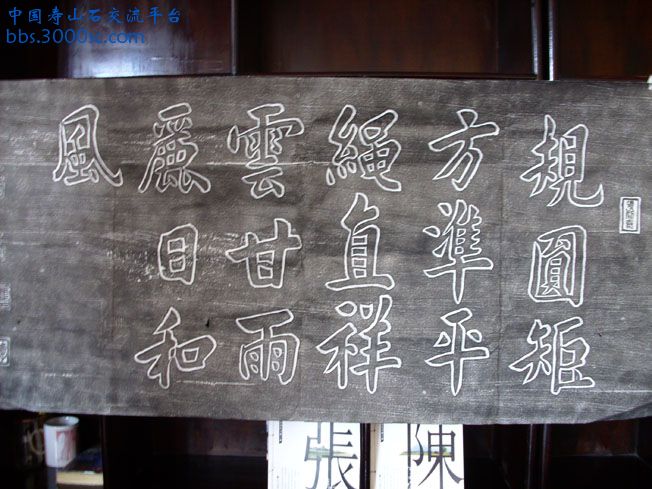 中国寿山石交流平台
規圓矩
方準平
繩直祥
雲甘雨
麗日和
風
張
陳